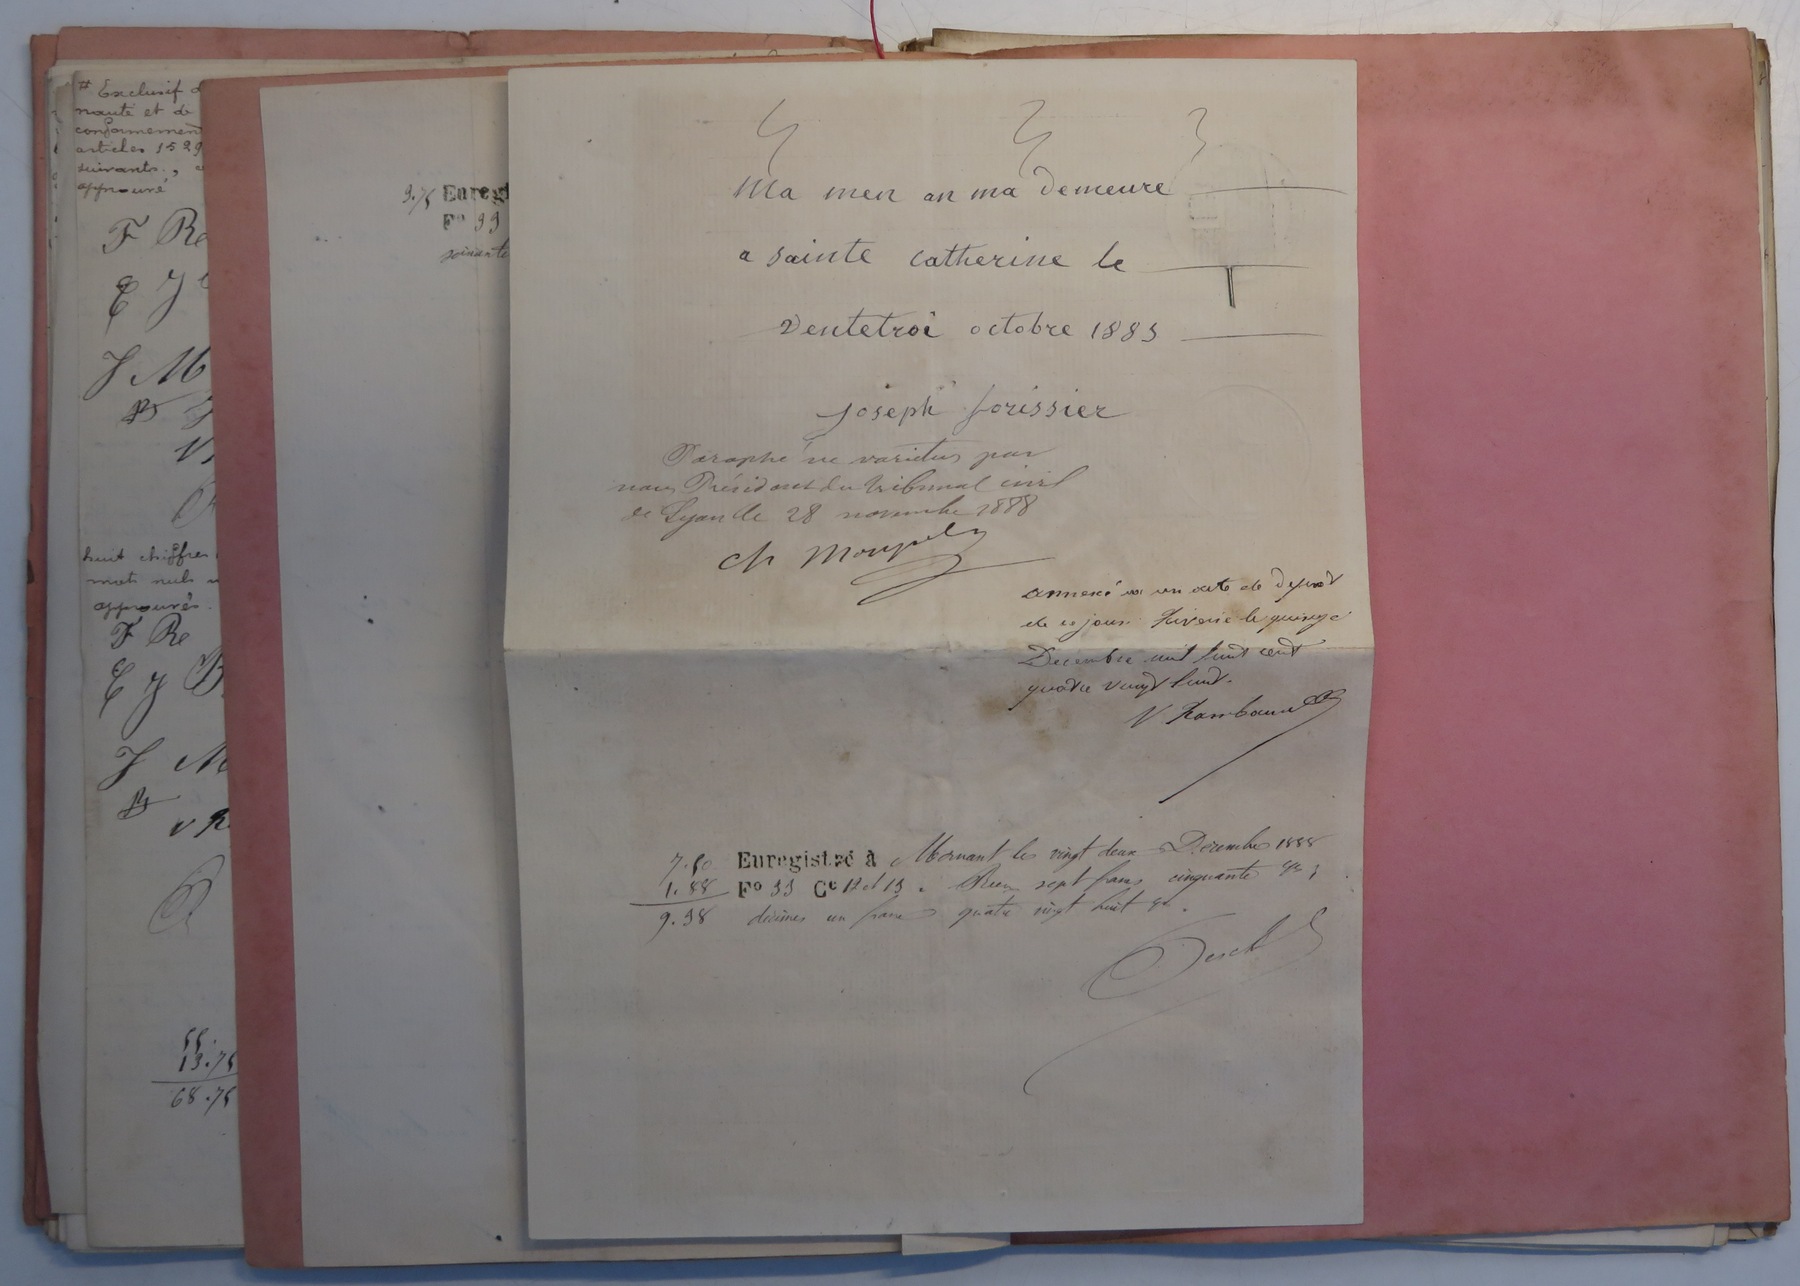 # Exclusif d
nauté et de
conformement
articles 1529
suivants, e
approuvé
F Re
E J
J M
huit chiffres
mots nuls
approuvés.
F Re
E J B
J M
V R
55.
13.75
68.75
9.75 Enregi
Fº 99
soixante
Ma men an ma demeure
a sainte catherine le
ventetroi octobre 1883
joseph forissier
Paraphé ne varietur par
nous Président du tribunal civil
de Lyon le 28 novembre 1888
annexé a un acte de depot
de ce jour. Riverie le quinze
Decembre mil huit cent
quatre vingt huit.
V Rambaud
7.50 Enregistré à Mornant le vingt deux Décembre 1888
1.88 Fº 33 Ce 12 et 13. Reçu sept francs cinquante
9.38 décimes un franc quatre vingt huit